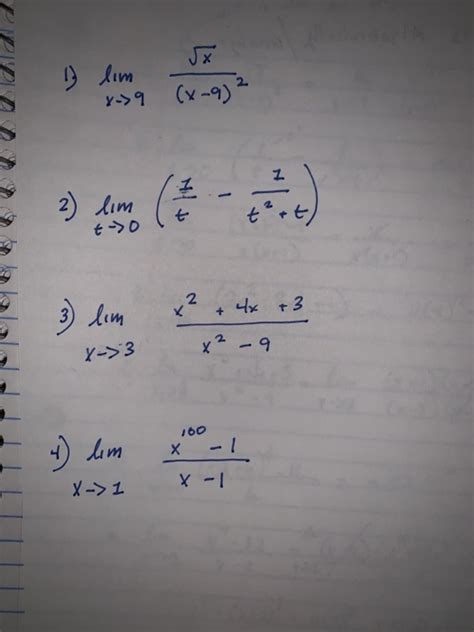 1) lim x->9 √x / (x-9)²
2) lim t->0 (1/t - 1/(t² + t))
3) lim x->3 (x² + 4x + 3) / (x² - 9)
4) lim x->1 (x¹⁰⁰ - 1) / (x - 1)